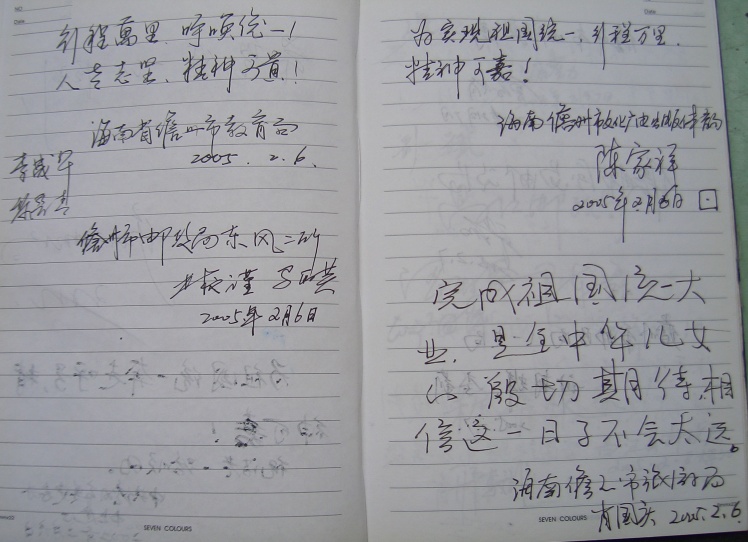 行程万里,呼唤统一!
人老志坚,精神可道!
海南省儋州市教育局
2005.2.6.
李成军
儋州市邮政局东风二所
2005年2月6日
SEVEN COLOURS
为实现祖国统一,行程万里,
精神可嘉!
海南儋州市文化广电出版体育局
陈家祥
2005年2月6日
完成祖国统一大
业,是全中华儿女
心 殷切期待,相
信这一日子不会太远。
海南儋州市旅游局
肖国夫 2005.2.6
SEVEN COLOURS